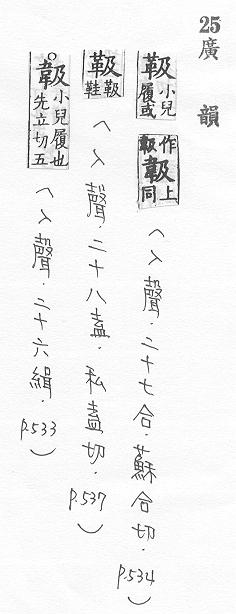 25 廣韻
靸 小兒履或作 上同（入聲．二十七合．蘇合切．p.534）
靸 靸鞋（入聲．二十八盍．私盍切．p.537）
小兒履也先立切五（入聲．二十六緝．p.533）